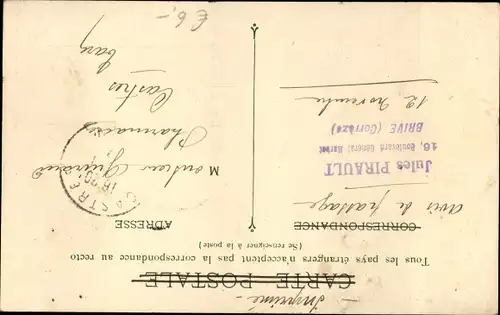 Imprimé -
CARTE POSTALE
Tous les pays étrangers n'acceptent pas la correspondance au recto
(Se renseigner à la poste)
CORRESPONDANCE
ADRESSE
avis de passage
Jules PIRAULT
16. Boulevard Général Marbot
BRIVE (Corrèze)
12 novembre
Monsieur
Pharmacien
Castres
Tarn
CASTRES
16 20
€ 6,-